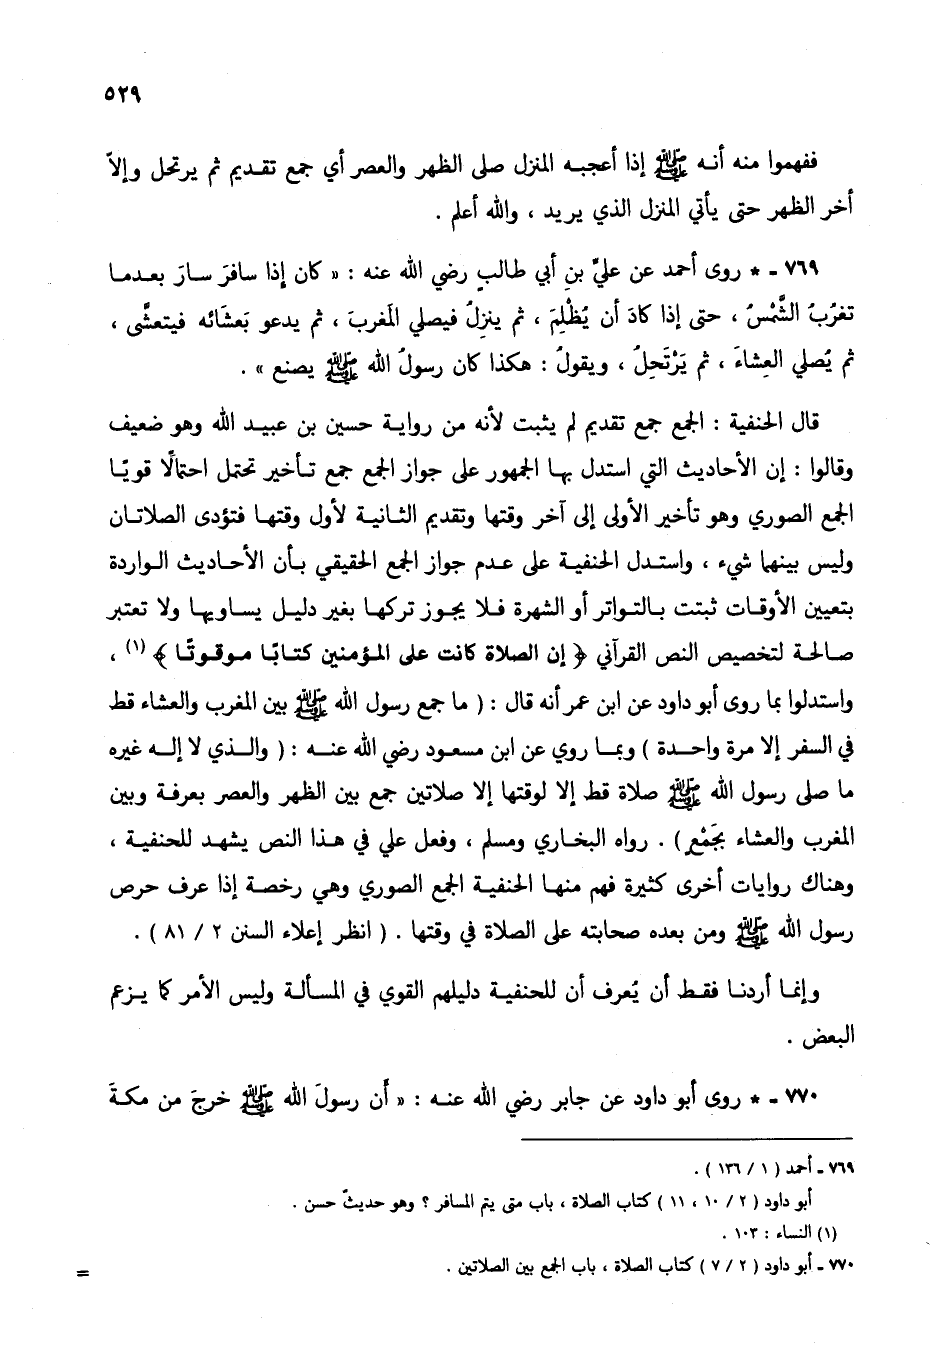 ٥٢٩
ففهموا منه أنه ﷺ إذا أعجبه المنزل صلى الظهر والعصر أي جمع تقديم ثم يرتحل وإلاّ
أخر الظهر حتى يأتي المنزل الذي يريد ، والله أعلم .
٧٦٩ ـ * روى أحمد عن عليِّ بنِ أبي طالبٍ رضي الله عنه : « كان إذا سافرَ سارَ بعدما
تغرُبُ الشَّمْسُ ، حتى إذا كادَ أن يُظْلِمَ ، ثم ينزِلُ فيصلي المَغربَ ، ثم يدعو بَعشَائه فيتعشَّى ،
ثم يُصلي العِشاءَ ، ثم يَرْتَحِلُ ، ويقولُ : هكذا كان رسولُ الله ﷺ يصنع » .
قال الحنفية : الجمع جمع تقديم لم يثبت لأنه من رواية حسين بن عبيد الله وهو ضعيف
وقالوا : إن الأحاديث التي استدل بها الجمهور على جواز الجمع جمع تأخير تحتمل احتمالًا قويًا
الجمع الصوري وهو تأخير الأولى إلى آخر وقتها وتقديم الثانية لأول وقتها فتؤدى الصلاتان
وليس بينهما شيء ، واستدل الحنفية على عدم جواز الجمع الحقيقي بأن الأحاديث الواردة
بتعيين الأوقات ثبتت بالتواتر أو الشهرة فلا يجوز تركها بغير دليل يساويها ولا تعتبر
صالحة لتخصيص النص القرآني ﴿ إن الصلاة كانت على المؤمنين كتابًا موقوتًا ﴾ (١) ،
واستدلوا بما روى أبو داود عن ابن عمر أنه قال : ( ما جمع رسول الله ﷺ بين المغرب والعشاء قط
في السفر إلا مرة واحدة ) وبما روي عن ابن مسعود رضي الله عنه : ( والذي لا إله غيره
ما صلى رسول الله ﷺ صلاة قط إلا لوقتها إلا صلاتين جمع بين الظهر والعصر بعرفة وبين
المغرب والعشاء بجَمْعٍ ) . رواه البخاري ومسلم ، وفعل علي في هذا النص يشهد للحنفية ،
وهناك روايات أخرى كثيرة فهم منها الحنفية الجمع الصوري وهي رخصة إذا عرف حرص
رسول الله ﷺ ومن بعده صحابته على الصلاة في وقتها . ( انظر إعلاء السنن ٢ / ٨١ ) .
وإنما أردنا فقط أن يُعرف أن للحنفية دليلهم القوي في المسألة وليس الأمر كما يزعم
البعض .
٧٧٠ ـ * روى أبو داود عن جابر رضي الله عنه : « أن رسولَ الله ﷺ خرجَ من مكةَ
٧٦٩ ـ أحمد ( ١ / ١٣٦ ) .
أبو داود ( ٢ / ١٠ ، ١١ ) كتاب الصلاة ، باب متى يتم المسافر ؟ وهو حديثٌ حسن .
(١) النساء : ١٠٣ .
٧٧٠ ـ أبو داود ( ٢ / ٧ ) كتاب الصلاة ، باب الجمع بين الصلاتين .
=